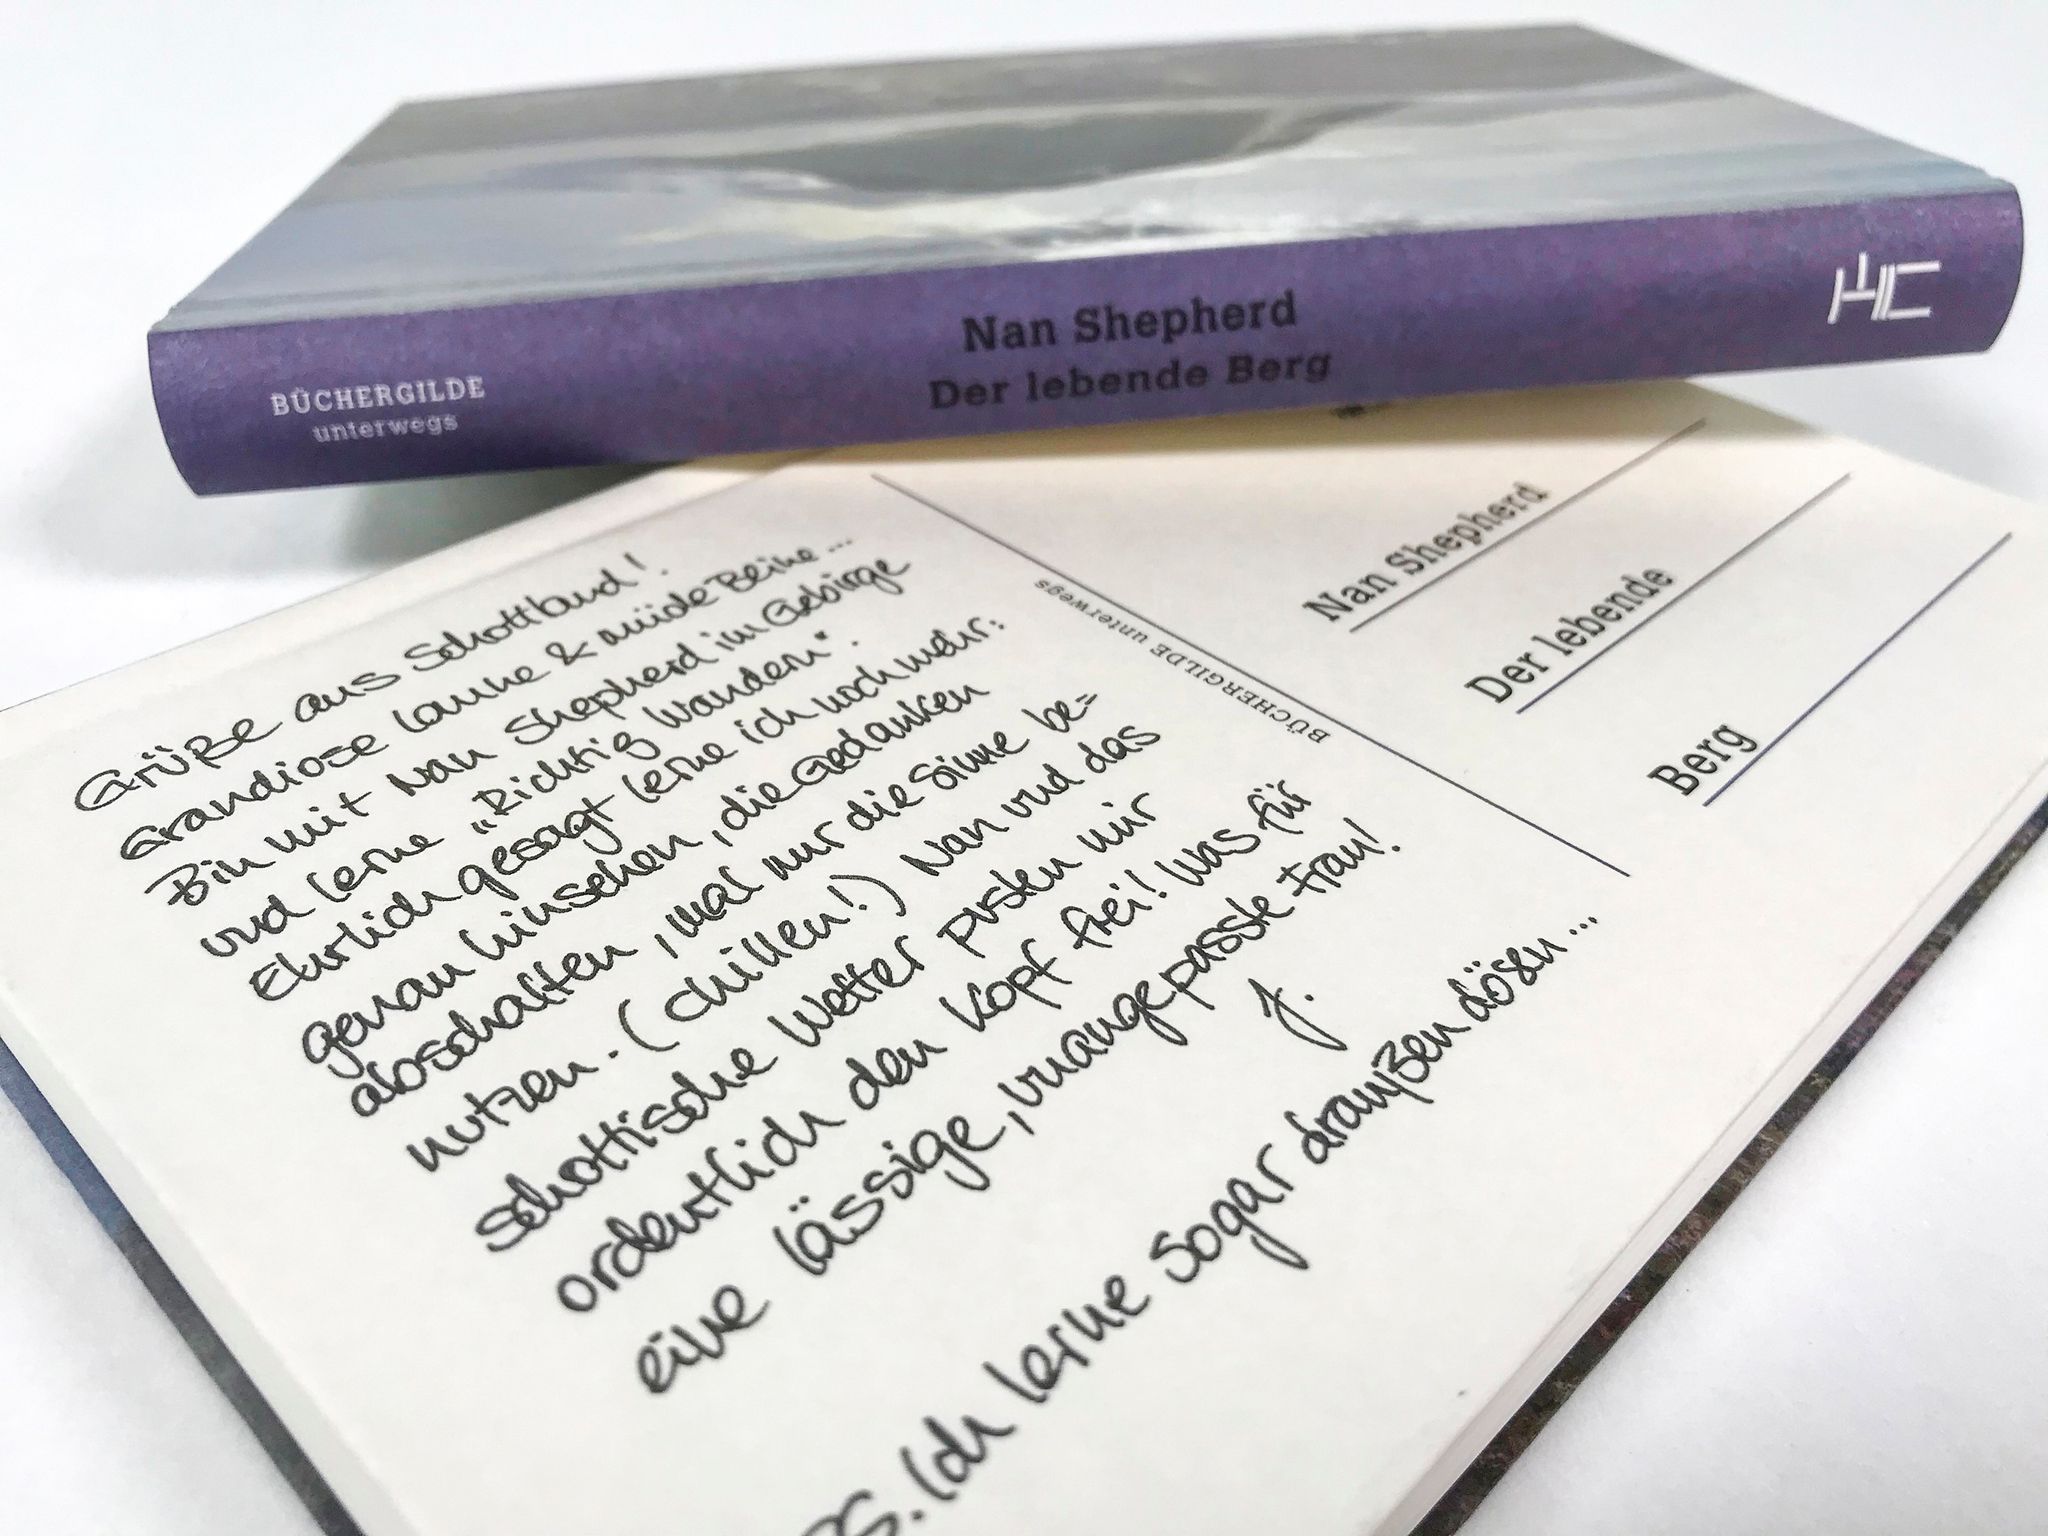 Nan Shepherd
Der lebende Berg
BÜCHERGILDE
unterwegs
Grüße aus Schottland!
Grandiose Laune & müde Beine...
Bin mit Nan Shepherd im Gebirge
und lerne „Richtig Wandern“.
Ehrlich gesagt lerne ich noch mehr:
genau hinsehen, die Gedanken
abschalten, mal nur die Sinne be=
nutzen. (chillen!) Nan und das
schottische Wetter pusten mir
ordentlich den Kopf frei! Was für
eine lässige, unangepasste Frau!
J.
PS. Ich lerne sogar draußen dösen...
BÜCHERGILDE unterwegs
Nan Shepherd
Der lebende
Berg